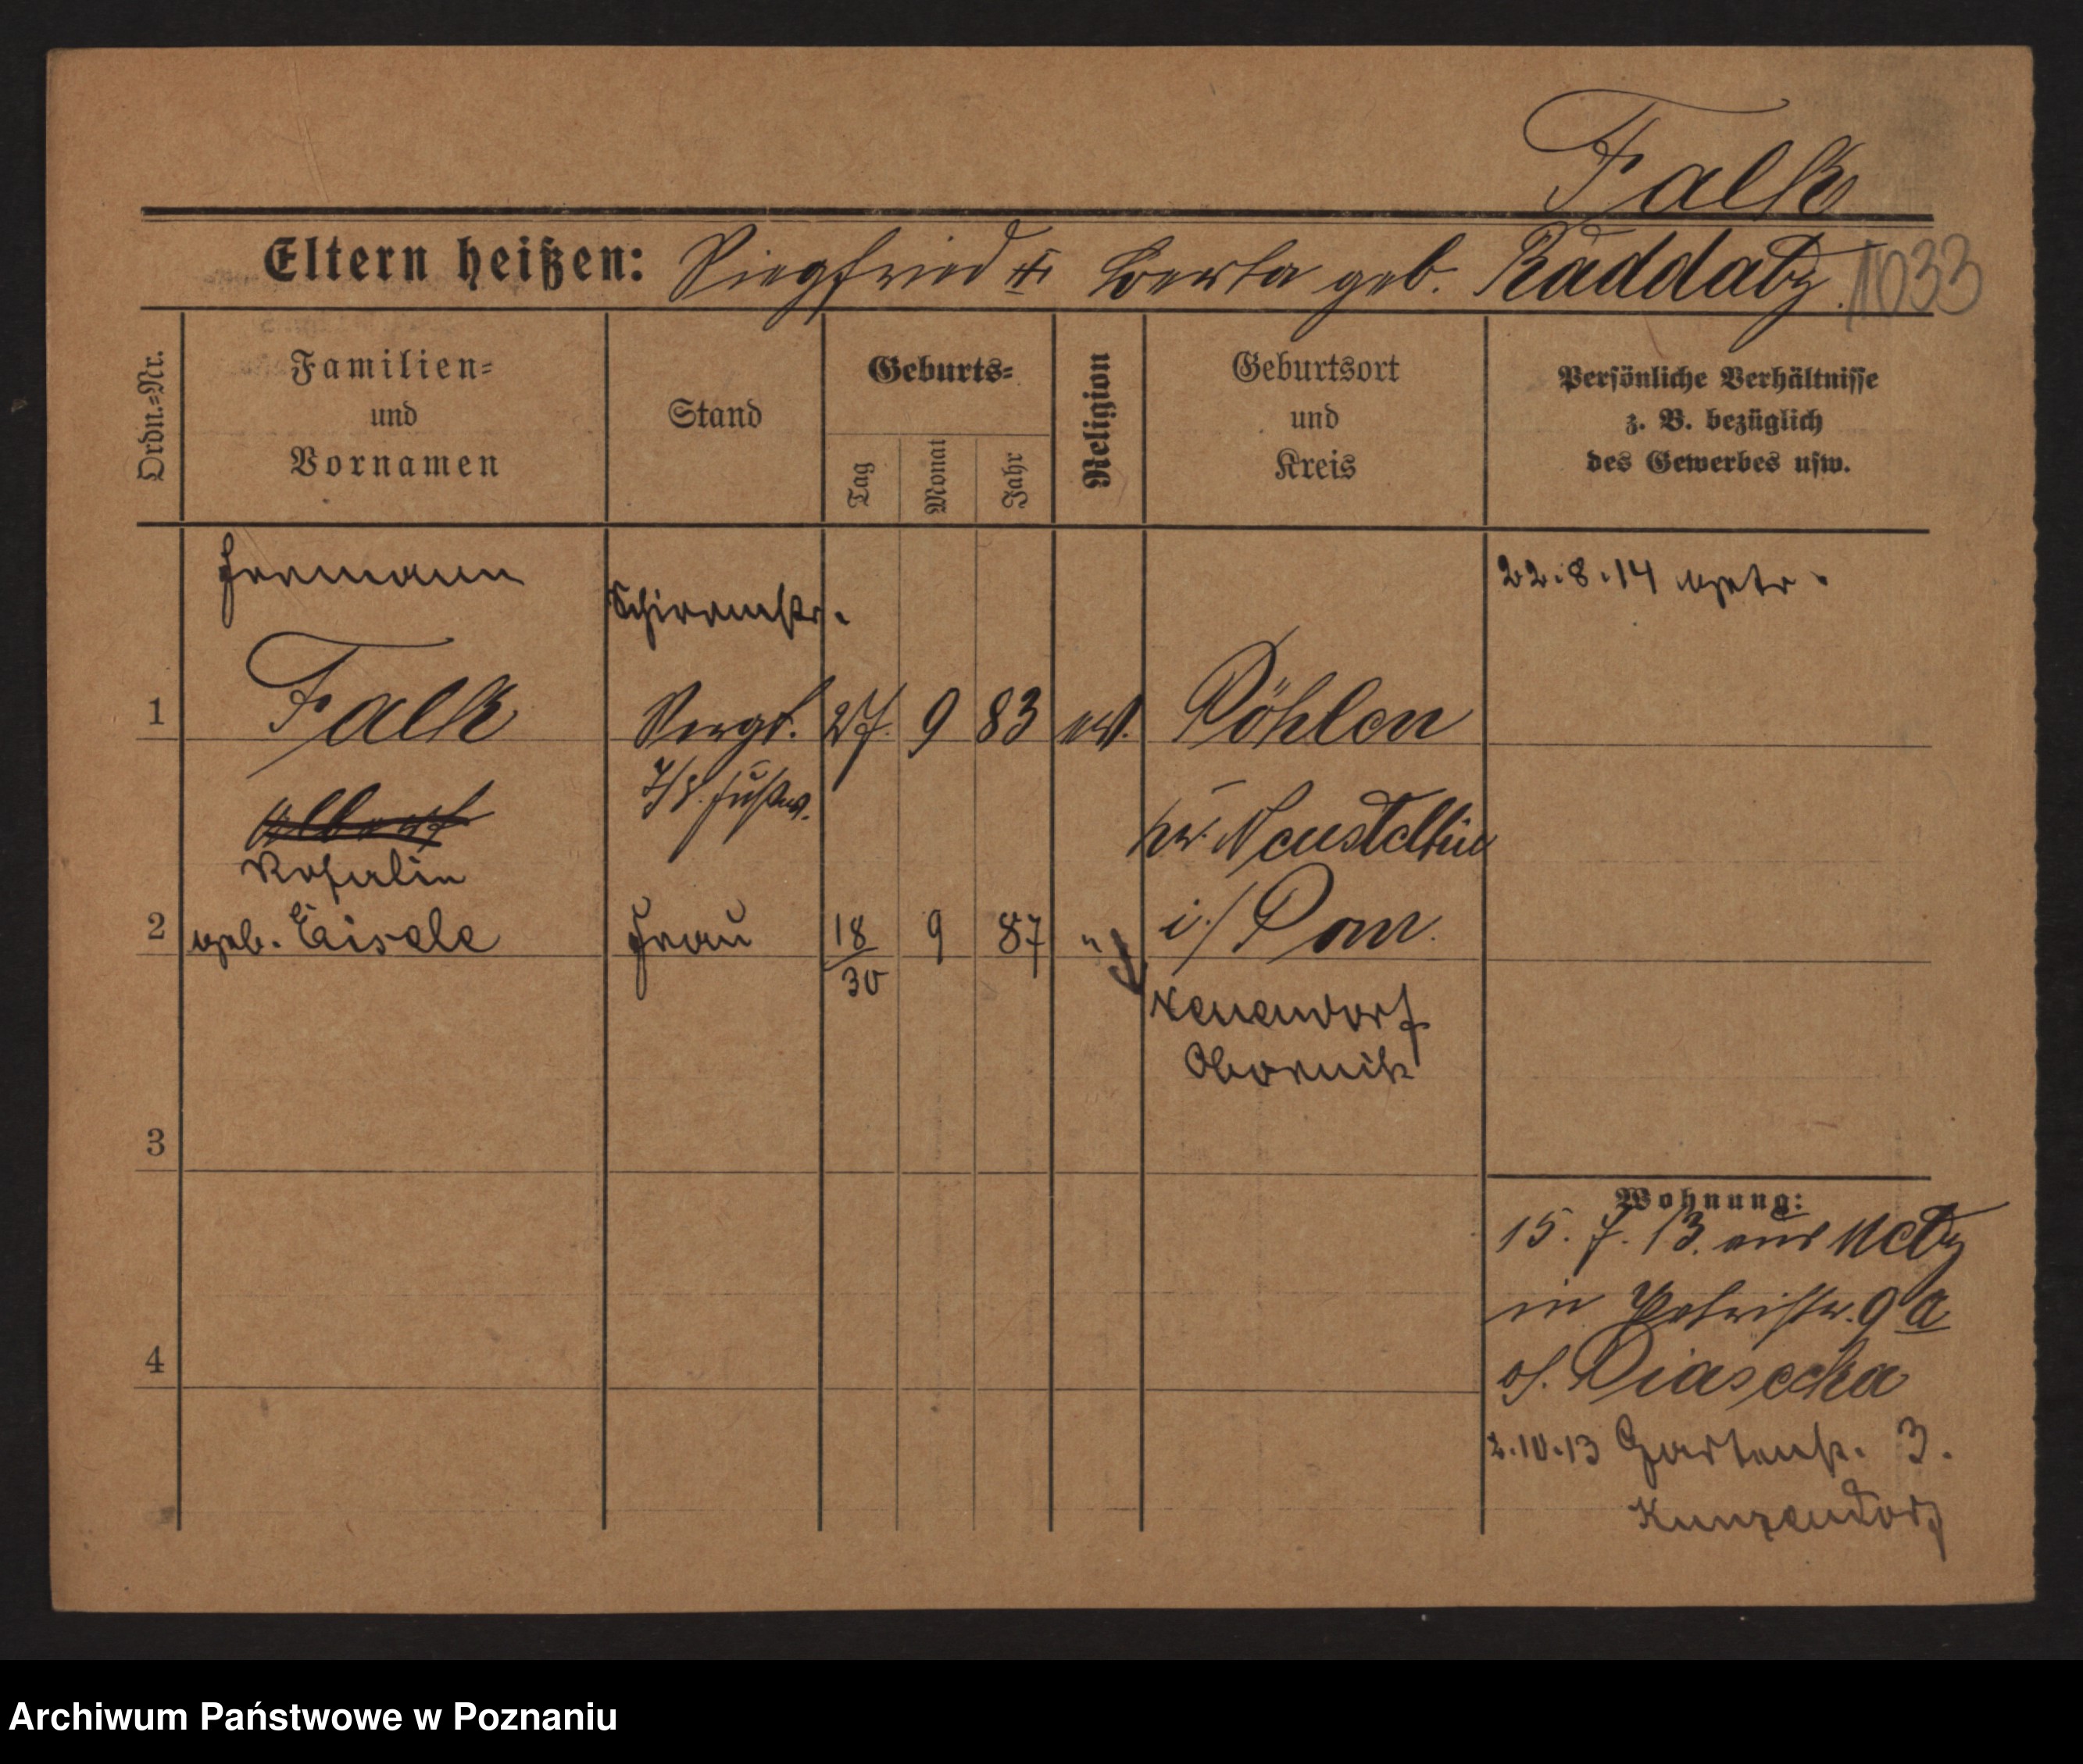 Falk
Eltern heißen: Siegfried u. Berta geb. Raddatz. 1033
Ordn.=Nr.
Familien=
und
Vornamen
Stand
Geburts=
Tag
Monat
Jahr
Religion
Geburtsort
und
Kreis
Persönliche Verhältnisse
z. B. bezüglich
des Gewerbes usw.
Hermann
22.8.14 getr.
1 Falk Sergt. 27. 9 83 ev. Pöhlen
Albert
Kr. Neustettin
Rosalie
i/ Pom.
2 geb. Eisele Frau 18 9 87 "
30
Neuendorf
Obornik
3
Wohnung:
15. 7. 13. aus Metz
in 9a
b/. Diasecka
4
2.10.13 Gartenstr. 3.
Kunzendorf
Archiwum Państwowe w Poznaniu